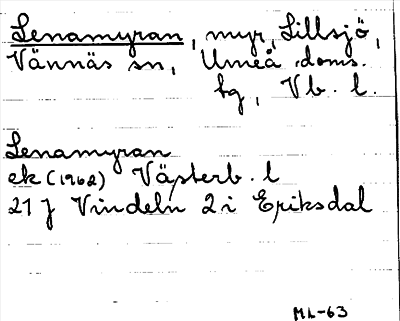 Lenamyran, myr, Lillsjö,
Vännäs sn, Umeå doms.
hg, Vb. l.
Lenamyran
ek (1962) Västerb. l
21 J Vindeln 2 i Eriksdal
ML-63